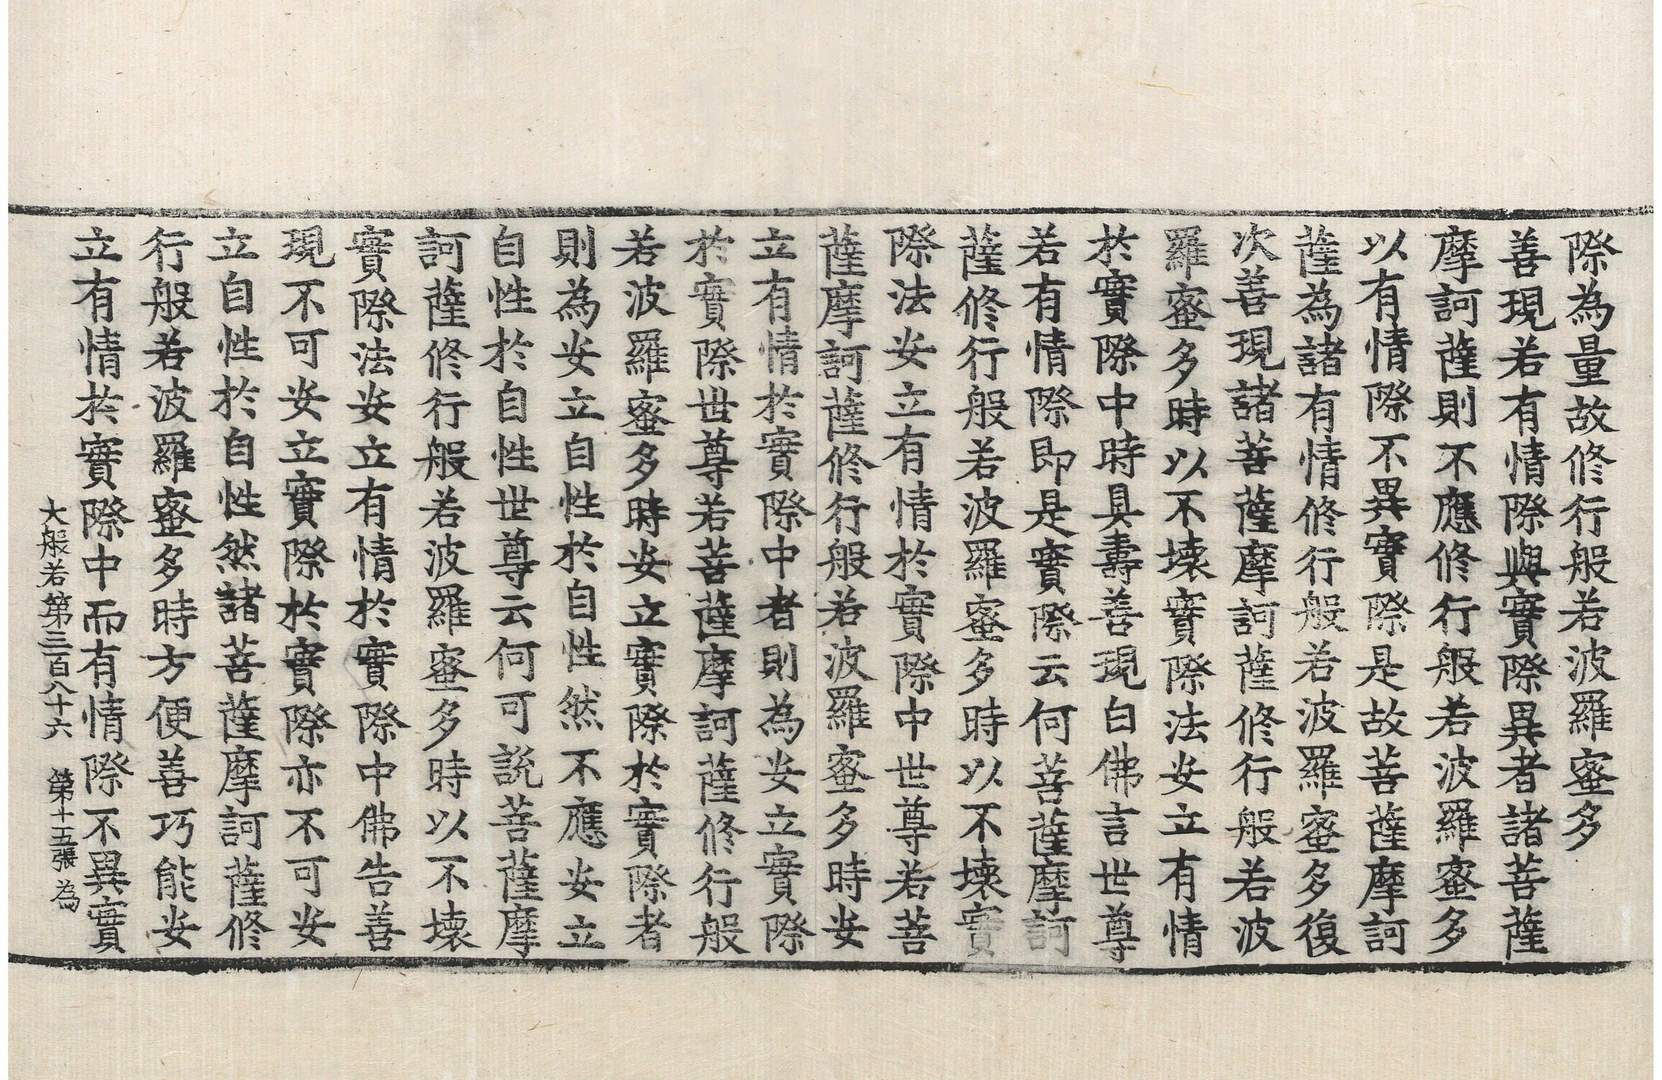 際為量故修行般若波羅蜜多
善現若有情際與實際異者諸菩薩
摩訶薩則不應修行般若波羅蜜多
以有情際不異實際是故菩薩摩訶
薩為諸有情修行般若波羅蜜多復
次善現諸菩薩摩訶薩修行般若波
羅蜜多時以不壞實際法安立有情
於實際中時具壽善現白佛言世尊
若有情際即是實際云何菩薩摩訶
薩修行般若波羅蜜多時以不壞實
際法安立有情於實際中世尊若菩
薩摩訶薩修行般若波羅蜜多時安
立有情於實際中者則為安立實際
於實際世尊若菩薩摩訶薩修行般
若波羅蜜多時安立實際於實際者
則為安立自性於自性然不應安立
自性於自性世尊云何可說菩薩摩
訶薩修行般若波羅蜜多時以不壞
實際法安立有情於實際中佛告善
現不可安立實際於實際亦不可安
立自性於自性然諸菩薩摩訶薩修
行般若波羅蜜多時方便善巧能安
立有情於實際中而有情際不異實
大般若第三百八十六 第十五張 為